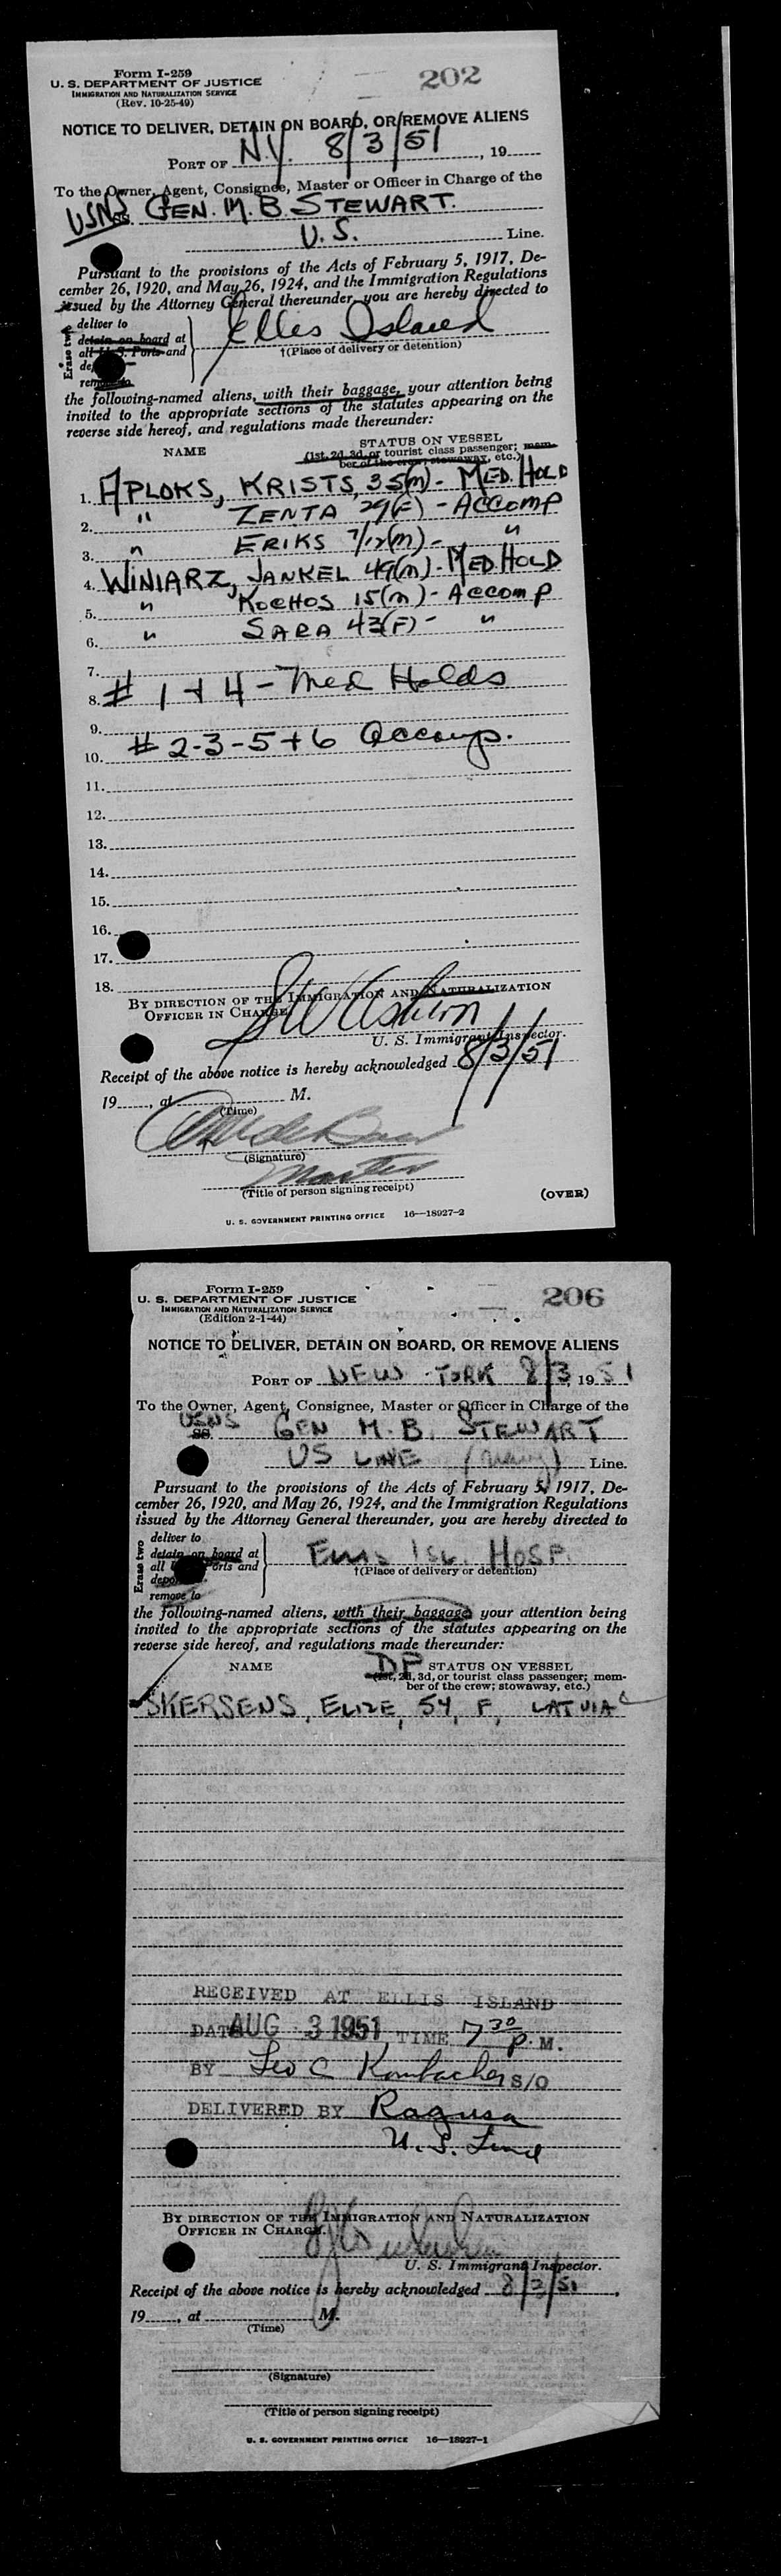 Form I-259
U. S. DEPARTMENT OF JUSTICE
IMMIGRATION AND NATURALIZATION SERVICE
(Rev. 10-25-49)
202
NOTICE TO DELIVER, DETAIN ON BOARD, OR REMOVE ALIENS
PORT OF N.Y. 8/3/51, 19
To the Owner, Agent, Consignee, Master or Officer in Charge of the
USNS GEN. M. B. STEWART.
U. S. Line.
Pursuant to the provisions of the Acts of February 5, 1917, De-
cember 26, 1920, and May 26, 1924, and the Immigration Regulations
issued by the Attorney General thereunder, you are hereby directed to
Erase two
deliver to
detain on board at
all U. S. Ports and
remove to
Ellis Island
†(Place of delivery or detention)
the following-named aliens, with their baggage, your attention being
invited to the appropriate sections of the statutes appearing on the
reverse side hereof, and regulations made thereunder:
NAME
STATUS ON VESSEL
(1st, 2d, 3d, or tourist class passenger; mem-
ber of the crew; stowaway, etc.)
1. APLOKS, KRISTS, 35(M) - MED. HOLD
2. " ZENTA 29(F) - ACCOMP
3. " ERIKS 7/12(M) - "
4. WINIARZ, JANKEL 49(M) - MED HOLD
5. " KOCHOS 15(M) - ACCOMP
6. " SARA 43(F) - "
7.
8. # 1 + 4 - Med Holds
9.
10. # 2-3-5+6 Accomp.
11.
12.
13.
14.
15.
16.
17.
18.
BY DIRECTION OF THE IMMIGRATION AND NATURALIZATION
OFFICER IN CHARGE
U. S. Immigrant Inspector.
Receipt of the above notice is hereby acknowledged 8/3/51
19, at M.
(Time)
(Signature)
Master
(Title of person signing receipt)
(OVER)
U. S. GOVERNMENT PRINTING OFFICE 16—18927-2
Form I-259
U. S. DEPARTMENT OF JUSTICE
IMMIGRATION AND NATURALIZATION SERVICE
(Edition 2-1-44)
206
NOTICE TO DELIVER, DETAIN ON BOARD, OR REMOVE ALIENS
PORT OF NEW YORK 8/3, 1951
To the Owner, Agent, Consignee, Master or Officer in Charge of the
USNS
SS. GEN M. B. STEWART
US LINE (Navy) Line.
Pursuant to the provisions of the Acts of February 5, 1917, De-
cember 26, 1920, and May 26, 1924, and the Immigration Regulations
issued by the Attorney General thereunder, you are hereby directed to
Erase two
deliver to
detain on board at
all Ports and
remove to
Ellis Isl. Hosp.
†(Place of delivery or detention)
the following-named aliens, with their baggage, your attention being
invited to the appropriate sections of the statutes appearing on the
reverse side hereof, and regulations made thereunder:
NAME
DP STATUS ON VESSEL
(1st, 2d, 3d, or tourist class passenger; mem-
ber of the crew; stowaway, etc.)
SKERSENS, ELIZE, 54, F, LATVIA
RECEIVED AT ELLIS ISLAND
DATE AUG 3 1951 TIME 7 30 P. M.
BY Leo C S/O
DELIVERED BY Ragusa
U. S. Line
BY DIRECTION OF THE IMMIGRATION AND NATURALIZATION
OFFICER IN CHARGE.
U. S. Immigrant Inspector.
Receipt of the above notice is hereby acknowledged 8/3/51,
19, at M.
(Time)
(Signature)
(Title of person signing receipt)
U. S. GOVERNMENT PRINTING OFFICE 16—18927-1